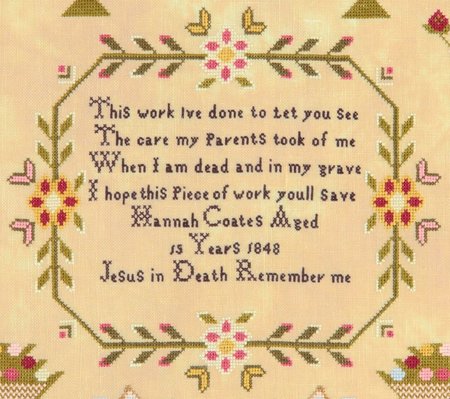 This work Ive done to Let you See
The care my Parents took of me
When I am dead and in my grave
I hope this Piece of work youll Save
Hannah Coates Aged
15 Years 1848
Jesus in Death Remember me